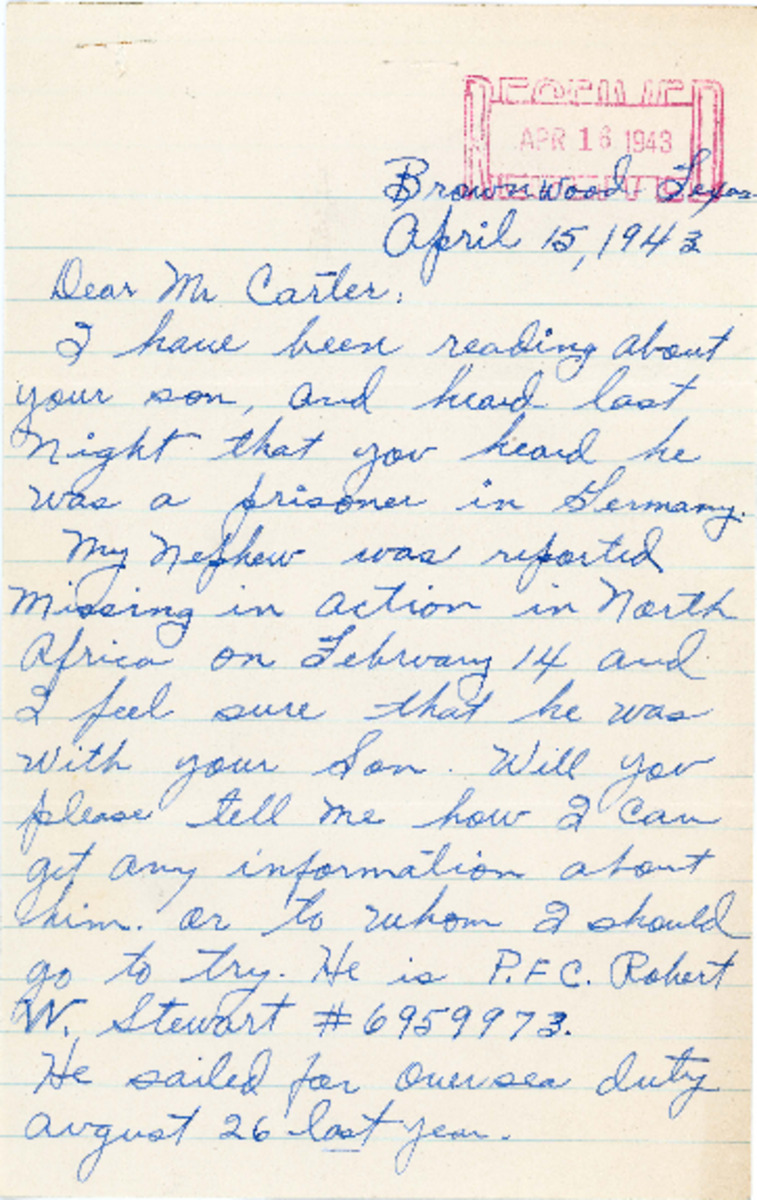 RECEIVED
APR 16 1943
Brownwood - Texas
April 15, 1943
Dear Mr Carter:
I have been reading about
your son, and heard last
night that you heard he
was a prisoner in Germany.
My Nephew was reported
missing in action in North
Africa on February 14 and
I feel sure that he was
with your Son. Will you
please tell me how I can
get any information about
him. or to whom I should
go to try. He is P.F.C. Robert
W. Stewart #6959973.
He sailed for oversea duty
August 26 last year.